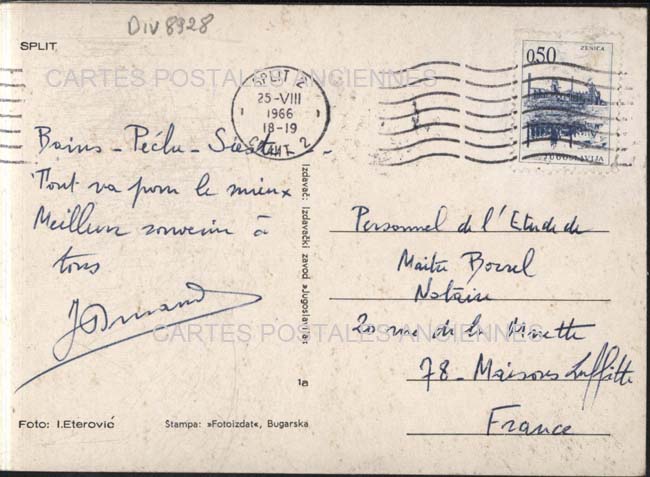 Div 8928
SPLIT
CARTES POSTALES ANCIENNES
SPLIT 2
25-VIII
1966
18-19
СПЛИТ 2
ZENICA
0,50
JUGOSLAVIJA
Bains - Pêche - Sieste
Tout va pour le mieux
Meilleur souvenir à
tous
Izdavač: Izdavački zavod »Jugoslavija«
1a
Personnel de l'Etude de
Maître Borrel
Notaire
20 rue de la Muette
78 - Maisons Laffitte
France
CARTES POSTALES ANCIENNES
Foto: I.Eterović
Štampa: »Fotoizdat«, Bugarska